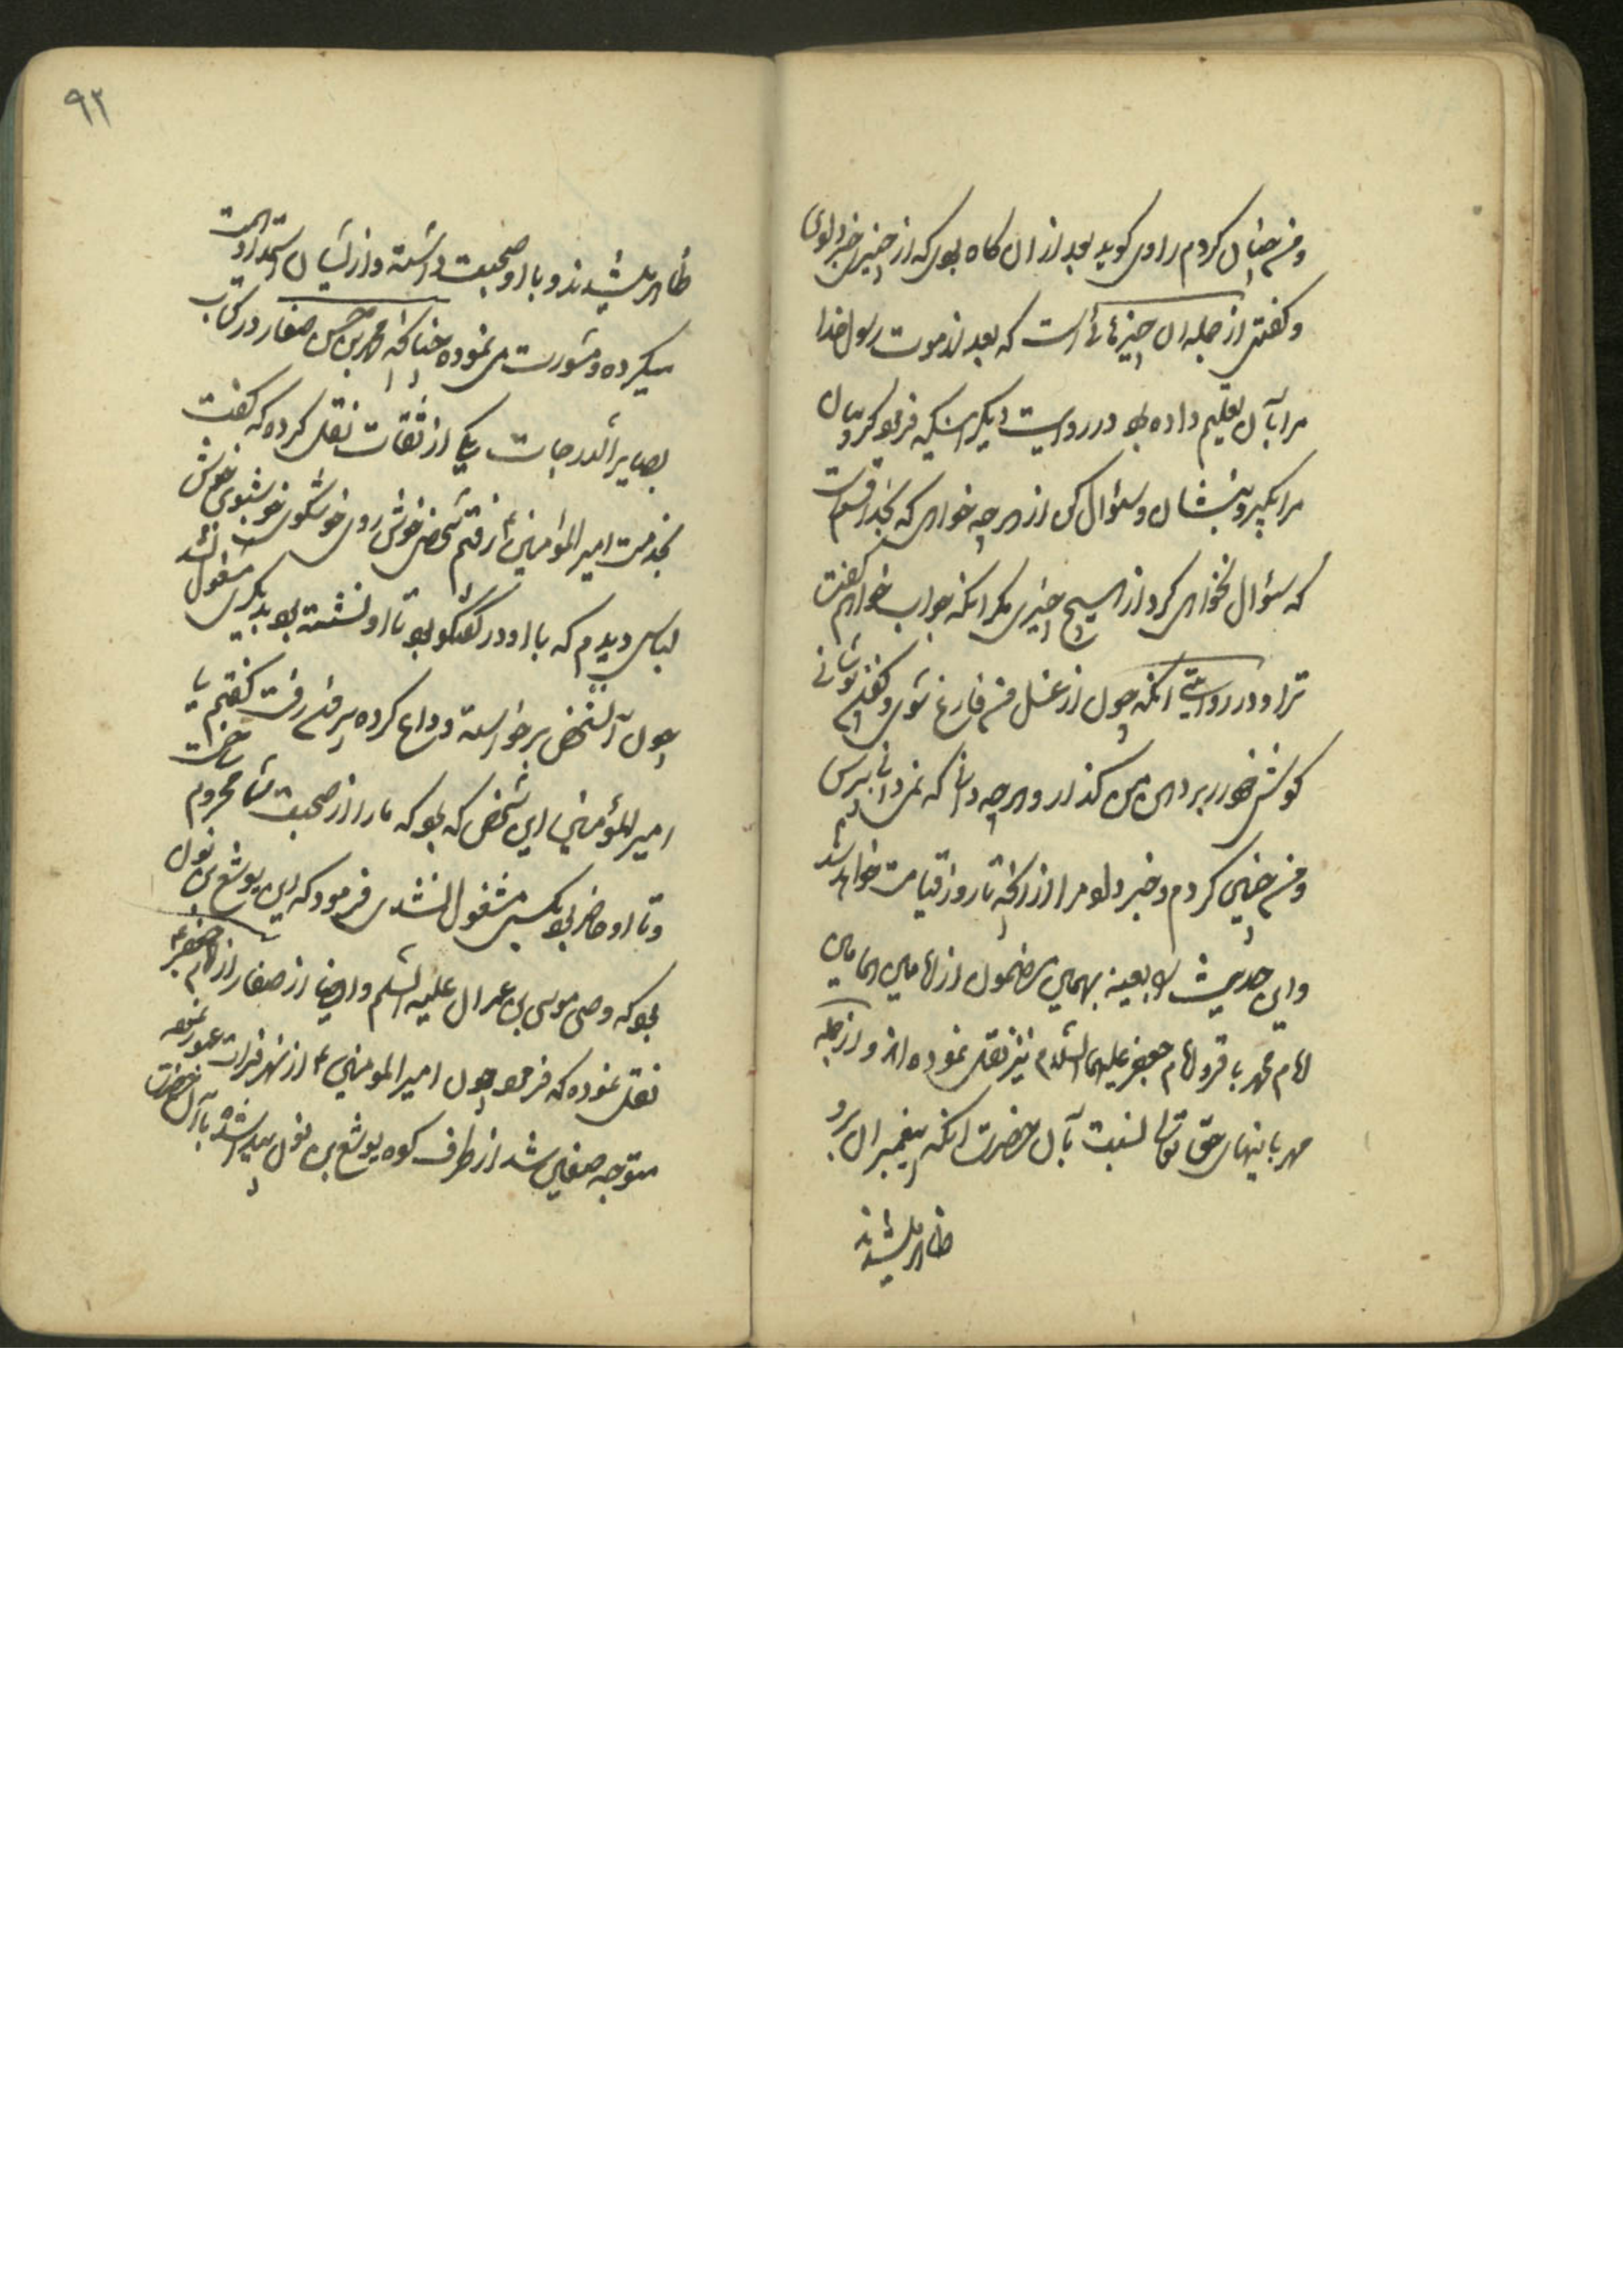 و من چنان کردم راوی کوید بعد از ان کاه بودی که از چیزی خبر دادی
و کفتی از جمله ان چیزهائی است که بعد از موت رسول خدا
مرا بآن تعلیم داده بود در روایت دیکر انکه فرمود کریبان
مرا بکیر و بنشان و سئوال کن از هر چه خواهی که بخدا قسم است
که سئوال نخواهی کرد از هیچ چیزی مکر انکه جواب خواهم کفت
ترا و در روایتی انکه چون از غسل من فارغ شوی و کفنم پوشانی
کوش خود بر دهن من کذار و هر چه دانی که نمیدانی بپرس
و من چنین کردم و خبر داد مرا از انچه تا روز قیامت خواهد شد
و این حدیث را بعینه بهمین مضمون از امامین همامین
امام محمد باقر و امام جعفر علیهما السّلام نیز نقل نموده اند و از جمله
مهربانیهای حق تعالی نسبت بآن حضرت انکه پیغمبران برو
ظاهر میشدند
۹۲
ظاهر میشدند و با او صحبت داشته و از ایشان استمداد همت
میکرده و مشورت می نموده چنانکه محمد بن حسن صفار در کتاب
بصایر الدرجات از یکی از ثقات نقل کرده که کفت
بخدمت امیر المؤمنین ع رفتم شخص خوش روی خوشکوی خوشبوی خوش
لباس دیدم که با او در کفتکو بود تا او نشسته بود بدیکری مشغول نشد
چون آنشخص برخواسته وداع کرده برفت کفتم یا
امیر المؤمنین این شخص که بود که ما را از صحبت شما محروم ساخت
و تا او حاضر بود بکسی مشغول نشدی فرمود که این یوشع بن نون
بود که وصی موسی بن عمران علیه السّلم و ایضا از صفار از امام جعفر ع
نقل نموده که فرمود چون امیر المومنین ع از نهر فرات عبور نموده
متوجه صفین شد از طرف کوه یوشع بن نون پیدا شد با آنحضرت